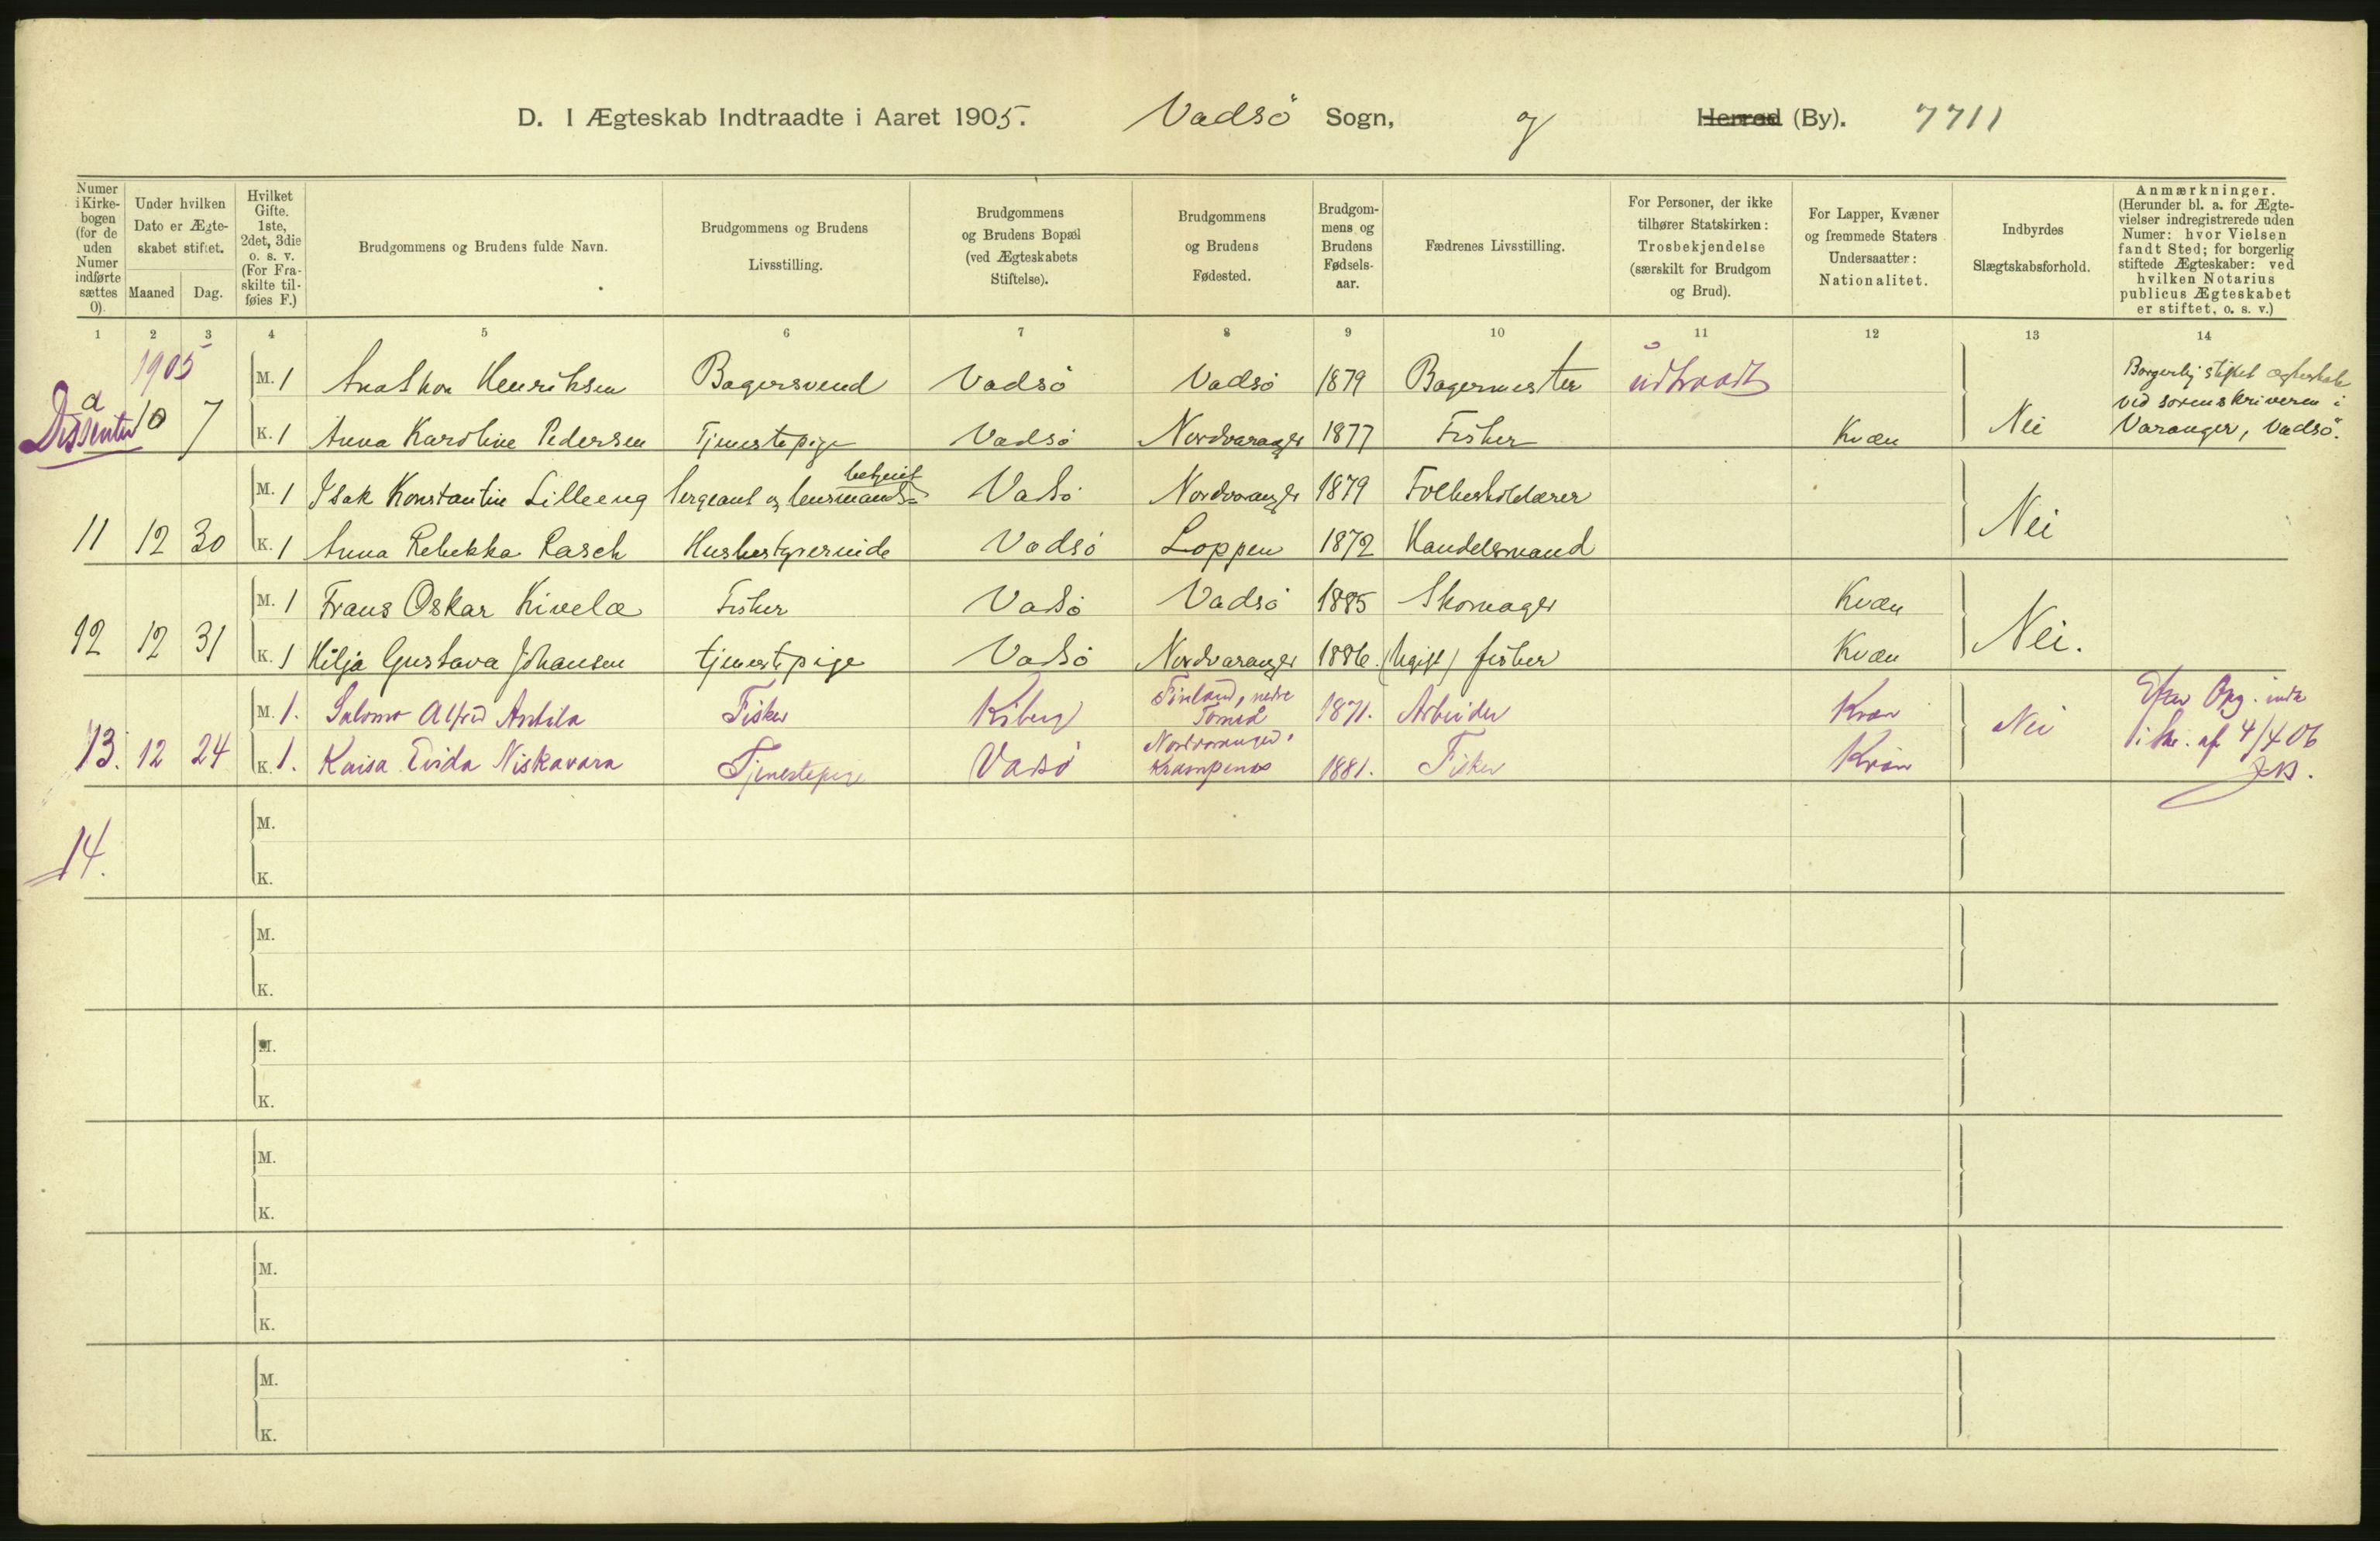 D. I Ægteskab Indtraadte i Aaret 1905. Vadsö Sogn, og Herred (By). 7711
Numer i Kirkebogen (for de uden Numer indførte sættes 0).
Under hvilken Dato er Ægteskabet stiftet.
Maaned
Dag.
Hvilket Gifte. 1ste, 2det, 3die o. s. v. (For Fraskilte tilføies F.)
Brudgommens og Brudens fulde Navn.
Brudgommens og Brudens Livsstilling.
Brudgommens og Brudens Bopæl (ved Ægteskabets Stiftelse).
Brudgommens og Brudens Fødested.
Brudgommens og Brudens Fødselsaar.
Fædrenes Livsstilling.
For Personer, der ikke tilhører Statskirken: Trosbekjendelse (særskilt for Brudgom og Brud).
For Lapper, Kvæner og fremmede Staters Undersaatter: Nationalitet.
Indbyrdes Slægtskabsforhold.
Anmærkninger. (Herunder bl. a. for Ægtevielser indregistrerede uden Numer: hvor Vielsen fandt Sted; for borgerlig stiftede Ægteskaber: ved hvilken Notarius publicus Ægteskabet er stiftet, o. s. v.)
1 2 3 4 5 6 7 8 9 10 11 12 13 14
1905
M. 1 Henriksen Bagersvend Vadsö Vadsö 1879 Bagermester udtraadt
Borgerlig stiftet ægteskab
ved sorenskriveren i
Varanger, Vadsö.
a
Dissenter 10 7 K. 1 Anna Karoline Pedersen Tjenestepige Vadsö Nordvaranger 1877 Fisker Kvæn Nei
M. 1 Isak Konstantin Lilleeng Sergeant og lensmandsbetjent Vadsö Nordvaranger 1879 Folkeskolelærer
11 12 30 K. 1 Anna Rebekka Rasch Husbestyrerinde Vadsö Loppen 1872 Handelsmand Nei
M. 1 Frans Oskar Kivela Fisker Vadsö Vadsö 1885 Skomager Kvæn
12 12 31 K. 1 Hilja Gustava Johansen tjenestepige Vadsö Nordvaranger 1886. (Ugift) fisker Kvæn Nei.
M. 1. Salomo Alfred Antila Fisker Kiberg Finland, nedre Torneå 1871. Arbeider Kvæn
13. 12 24 K. 1. Kaisa Evida Niskavara Tjenestepige Vadsö Nordvaranger, Krampenæs 1881. Fisker Kvæn Nei
Efter Opg. indk
i Skr. af 4/4 06
14.
M.
K.
M.
K.
M.
K.
M.
K.
M.
K.
M.
K.